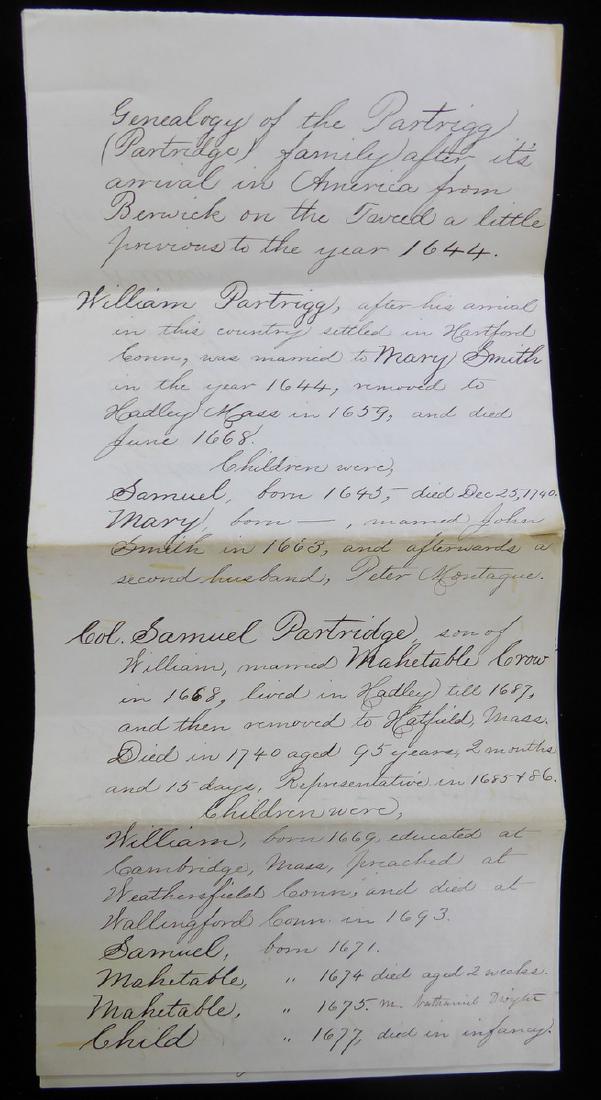 Genealogy of the Partrigg
(Partridge) family after it's
arrival in America from
Berwick on the Tweed a little
previous to the year 1644.
William Partrigg, after his arrival
in this country settled in Hartford
Conn, was married to Mary Smith
in the year 1644, removed to
Hadley Mass in 1659, and died
June 1668.
Children were,
Samuel, born 1645,- died Dec 25, 1740.
Mary, born — , married John
Smith in 1663, and afterwards a
second husband, Peter Montague.
Col. Samuel Partridge, son of
William, married Mahetable Crow
in 1668, lived in Hadley till 1687,
and then removed to Hatfield, Mass.
Died in 1740 aged 95 years, 2 months
and 15 days. Representative in 1685 & 86.
Children were,
William, born 1669, educated at
Cambridge, Mass, preached at
Weathersfield Conn, and died at
Wallingford Conn. in 1693.
Samuel, born 1671.
Mahetable, " 1674 died aged 2 weeks.
Mahetable, " 1675. m. Nathaniel Dwight
Child " 1677, died in infancy.